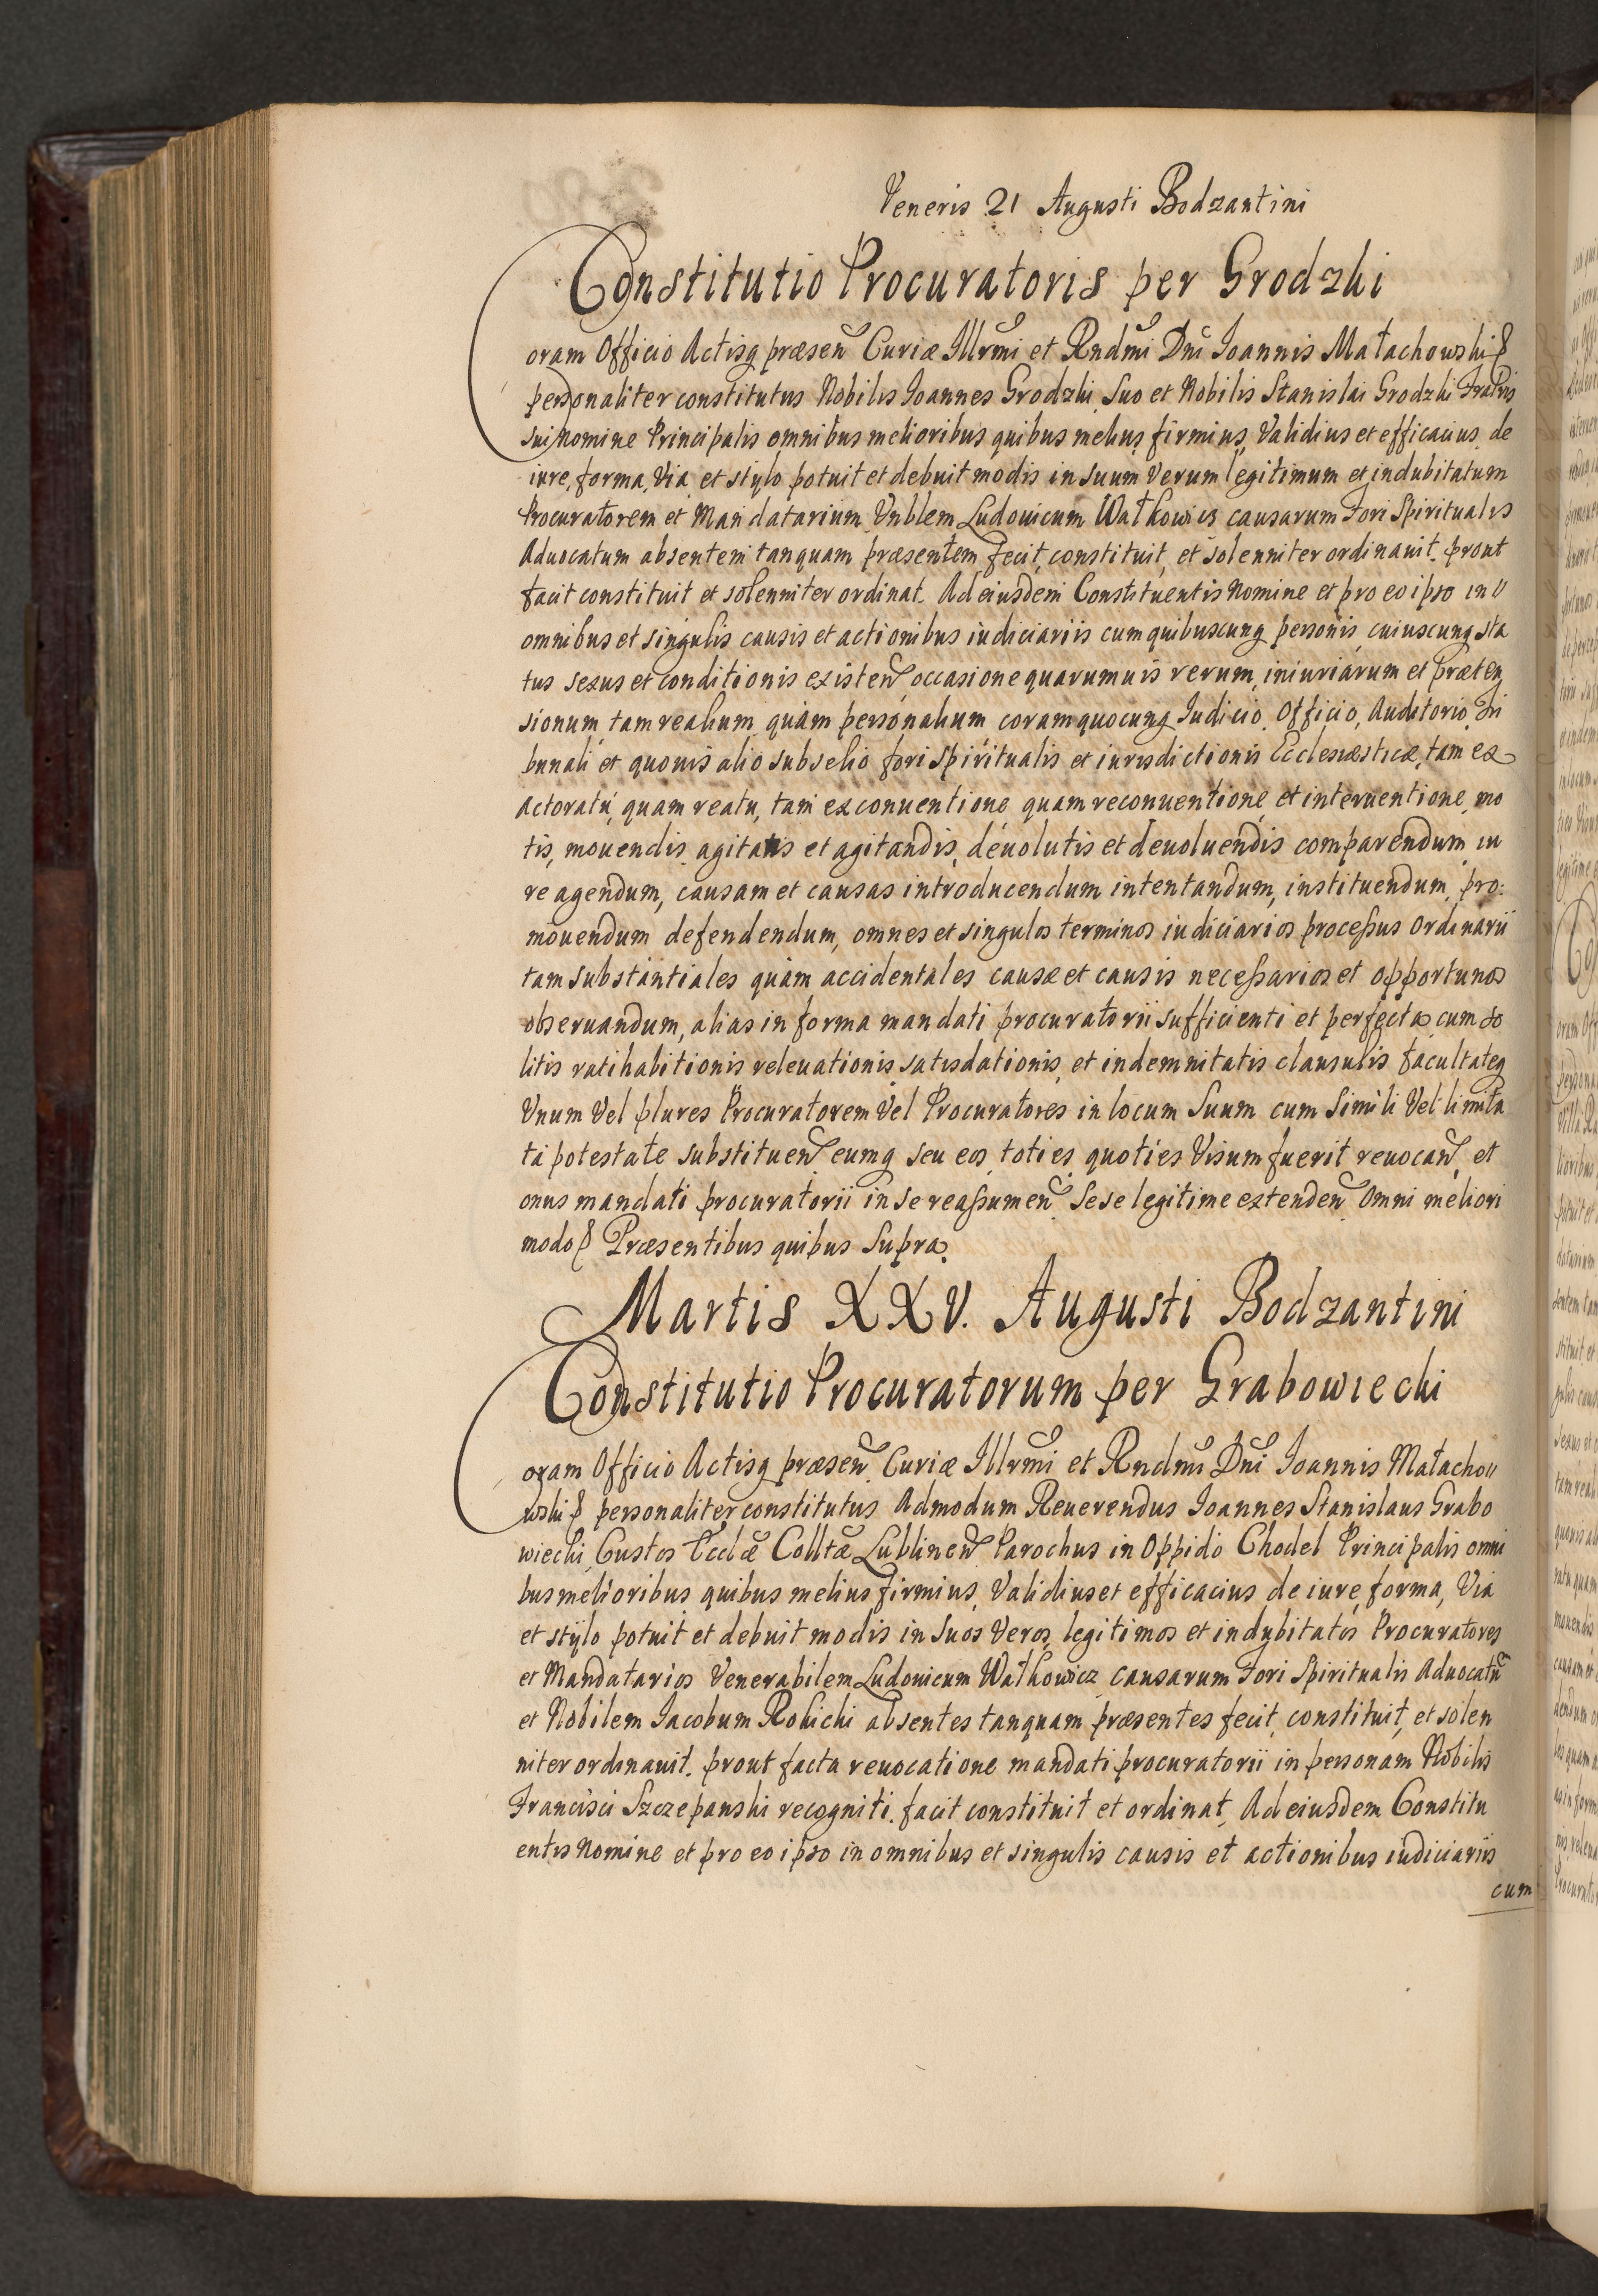 Veneris 21 Augusti Bodzantini
Constitutio Procuratoris per Grodzki
Coram Officio Actisq præsen Curiæ Illrmi et Rndmi Dni Joannis Małachowski &
personaliter constitutus Nobilis Joannes Grodzki, Suo et Nobilis Stanislai Grodzki Fratris
sui nomine Principalis omnibus melioribus quibus melius, firmius, Validius et efficacius, de
iure, forma, Via, et stylo potuit et debuit modis in suum Verum legitimum et indubitatum
Procuratorem et Mandatarium Vnblem Ludouicum Wałkowicz causarum Fori Spiritualis
Aduocatum absentem tanquam præsentem fecit, constituit, et solenniter ordinauit. prout
facit constituit et solenniter ordinat. Ad eiusdem Constituentis Nomine et pro eo ipso in
omnibus et singulis causis et actionibus iudiciariis cum quibuscunq personis, cuiuscunq sta
tus sexus et conditionis existen, occasione quarumuis rerum, iniuriarum et præten
sionum, tam realium, quàm personalium, coram quocunq Iudicio, Officio, Auditorio, Tri
bunali et quouis alio subselio fori spiritualis et iurisdictionis Ecclesiæsticæ, tam ex
actoratu, quam reatu, tam ex conuentione, quam reconuentione, et interuentione, mo
tis, mouendis, agitatis et agitandis, deuolutis et deuoluendis comparendum, iu
re agendum, causam et causas introducendum, intentandum, instituendum, pro:
mouendum defendendum, omnes et singulos terminos iudiciarios processus Ordinarii
tam substantiales quàm accidentales causæ et causis necessarios et opportunos
obseruandum, alias in forma mandati procuratorii sufficienti et perfecta cum so
litis ratihabitionis releuationis satisdationis, et indemnitatis clausulis facultateq
Vnum Vel plures Procuratorem Vel Procuratores in locum Suum cum Simili Vel limita
ta potestate substituen, eumq seu eos, toties, quoties Visum fuerit, reuocan, et
onus mandati procuratorii in se reassumen. Sese legitime extenden. Omni meliori
modo & Præsentibus quibus Supra.
Martis XXV. Augusti Bodzantini
Constitutio Procuratorum per Grabowiecki
Coram Officio Actisq præsen. Curiæ Illrmi et Rndmi Dni Joannis Małacho
wski & personaliter constitutus Admodum Reuerendus Joannes Stanislaus Grabo
wiecki, Custos Ecclæ Colltæ Lublinen Parochus in Oppido Chodel Principalis omni
bus melioribus quibus melius firmius, Validius et efficacius, de iure, forma, Via
et stylo potuit et debuit modis in Suos Veros, legitimos et indubitatos Procuratores
et Mandatarios Venerabilem Ludouicum Wałkowicz causarum Fori Spiritualis Aduocatu
et Nobilem Jacobum Rokicki absentes tanquam præsentes fecit, constituit, et solen
niter ordinauit. prout facta reuocatione mandati procuratorii in personam Nobilis
Francisci Szczepanski recogniti. facit constituit et ordinat, Ad eiusdem Constitu
entis Nomine et pro eo ipso in omnibus et singulis causis et actionibus iudiciariis
cum